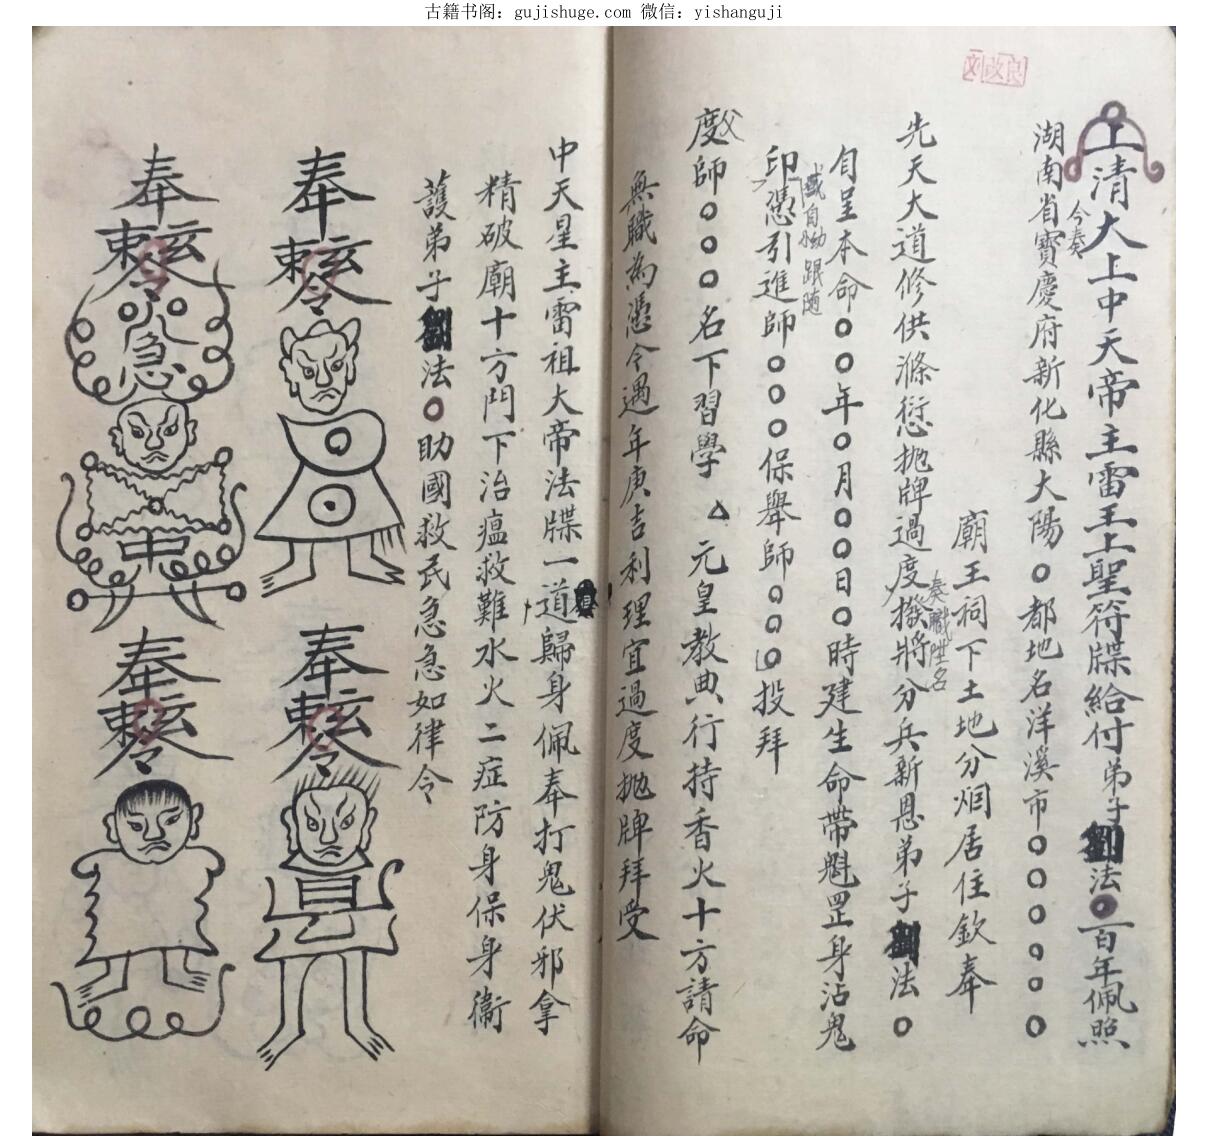 古籍书阁：gujishuge.com 微信：yishanguji
上清大上中天帝主雷王上聖符牒給付弟子劉法○一百年佩照
今奏
湖南省寶慶府新化縣大陽○都地名洋溪市○○○○○○
廟王祠下土地分烟居住欽奉
先天大道修供滌愆拋牌過度撥將分兵新恩弟子劉法○
奏職陞名
自呈本命○○年○月○○日○時建生命帶魁罡身沾鬼
自幼跟随
印憑引進師○○○保舉師○○○投拜
度父師○○○名下習學 元皇教典行持香火十方請命
無職為憑今遇年庚吉利理宜過度拋牌拜受
中天星主雷祖大帝法牒一道歸身佩奉打鬼伏邪拿
精破廟十方門下治瘟救難水火二症防身保身衛
護弟子劉法○助國救民急急如律令
奉
敕令
奉
敕令
急
奉
敕令
奉
敕令